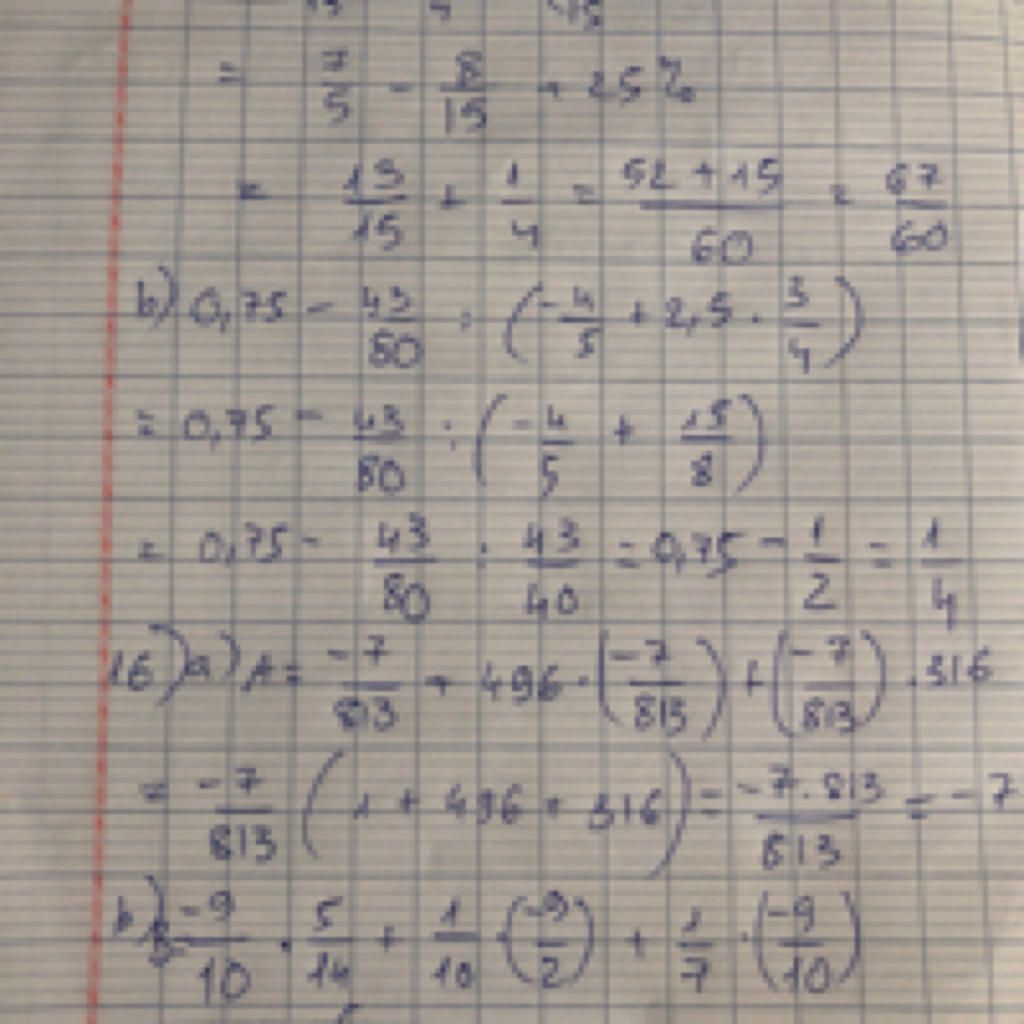 = 7/5 - 8/15 + 25%
= 13/15 + 1/4 = (52 + 15)/60 = 67/60
b) 0,75 - 43/80 : (-4/5 + 2,5 . 3/4)
= 0,75 - 43/80 : (-4/5 + 15/8)
= 0,75 - 43/80 : 43/40 = 0,75 - 1/2 = 1/4
16) a) A = -7/813 + 496 . (-7/813) + (-7/813) . 316
= -7/813 (1 + 496 + 316) = (-7 . 813)/813 = -7
b) -9/10 . 5/14 + 1/10 . (-9/2) + 1/7 . (-9/10)